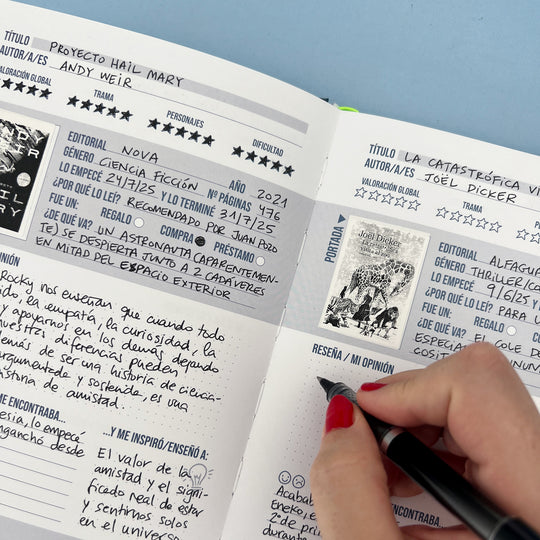 TÍTULO PROYECTO HAIL MARY
AUTOR/A/ES ANDY WEIR
VALORACIÓN GLOBAL TRAMA PERSONAJES DIFICULTAD
EDITORIAL NOVA
GÉNERO CIENCIA FICCIÓN AÑO 2021
LO EMPECÉ 24/7/25 Y LO TERMINÉ 31/7/25 Nº PÁGINAS 476
¿POR QUÉ LO LEÍ? RECOMENDADO POR JUAN POZO
FUE UN: REGALO COMPRA PRÉSTAMO
¿DE QUÉ VA? UN ASTRONAUTA (APARENTEMEN-
TE) SE DESPIERTA JUNTO A 2 CADÁVERES
EN MITAD DEL ESPACIO EXTERIOR
OPINIÓN
Rocky nos enseñan que cuando todo
la empatía, la curiosidad, la
y apoyarnos en los demás dejando
nuestras diferencias pueden
de ser una historia de ciencia-
argumentada y sostenida, es una
historia de amistad.
ME ENCONTRABA...
lo empecé
enganchó desde
...Y ME INSPIRÓ/ENSEÑÓ A:
El valor de la
amistad y el signi-
ficado real de estar
y sentirnos solos
en el universo
TÍTULO LA CATASTRÓFICA VI
AUTOR/A/ES JOËL DICKER
VALORACIÓN GLOBAL TRAMA
PORTADA
Joël Dicker
EDITORIAL ALFAGU
GÉNERO THRILLER/CO
LO EMPECÉ 9/6/25 Y
¿POR QUÉ LO LEÍ? PARA U
FUE UN: REGALO
¿DE QUÉ VA? EL COLE DE
ESPECIA INUN
COSIT
RESEÑA / MI OPINIÓN
ENCONTRABA...
Acabab
Eneko, e
2º de prim
durante